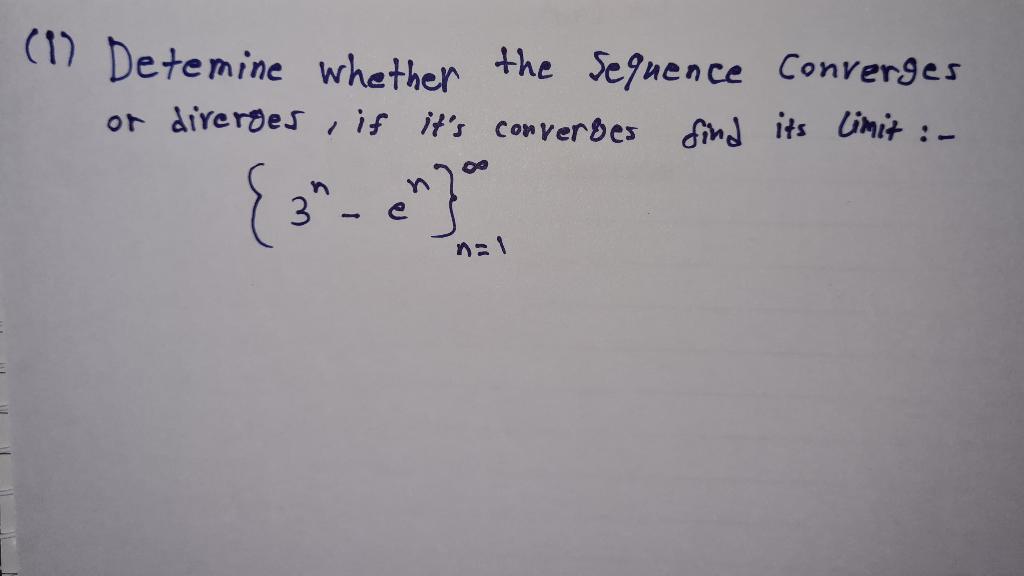 (1) Detemine whether the Sequence Converges
or diverges, if it's converges find its Limit :-
{ 3ⁿ - eⁿ }^∞_{n=1}